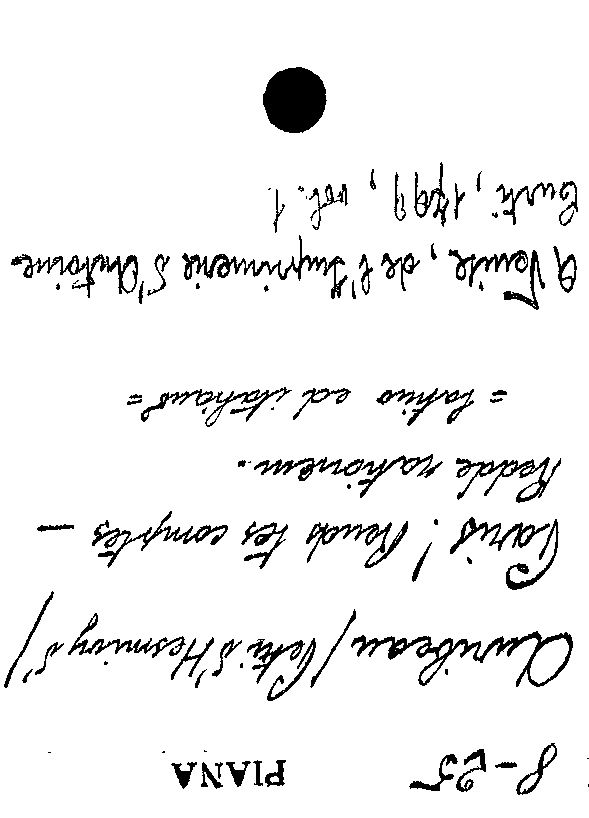 8-25 PIANA
Auribeau / Petri d'Hesmivy d' /
Paris! Rends tes comptes —
Redde rationem.
= latino ed italiano =
A Venise, de l'Imprimerie d'Antoine
Curti, 1799, vol. 1